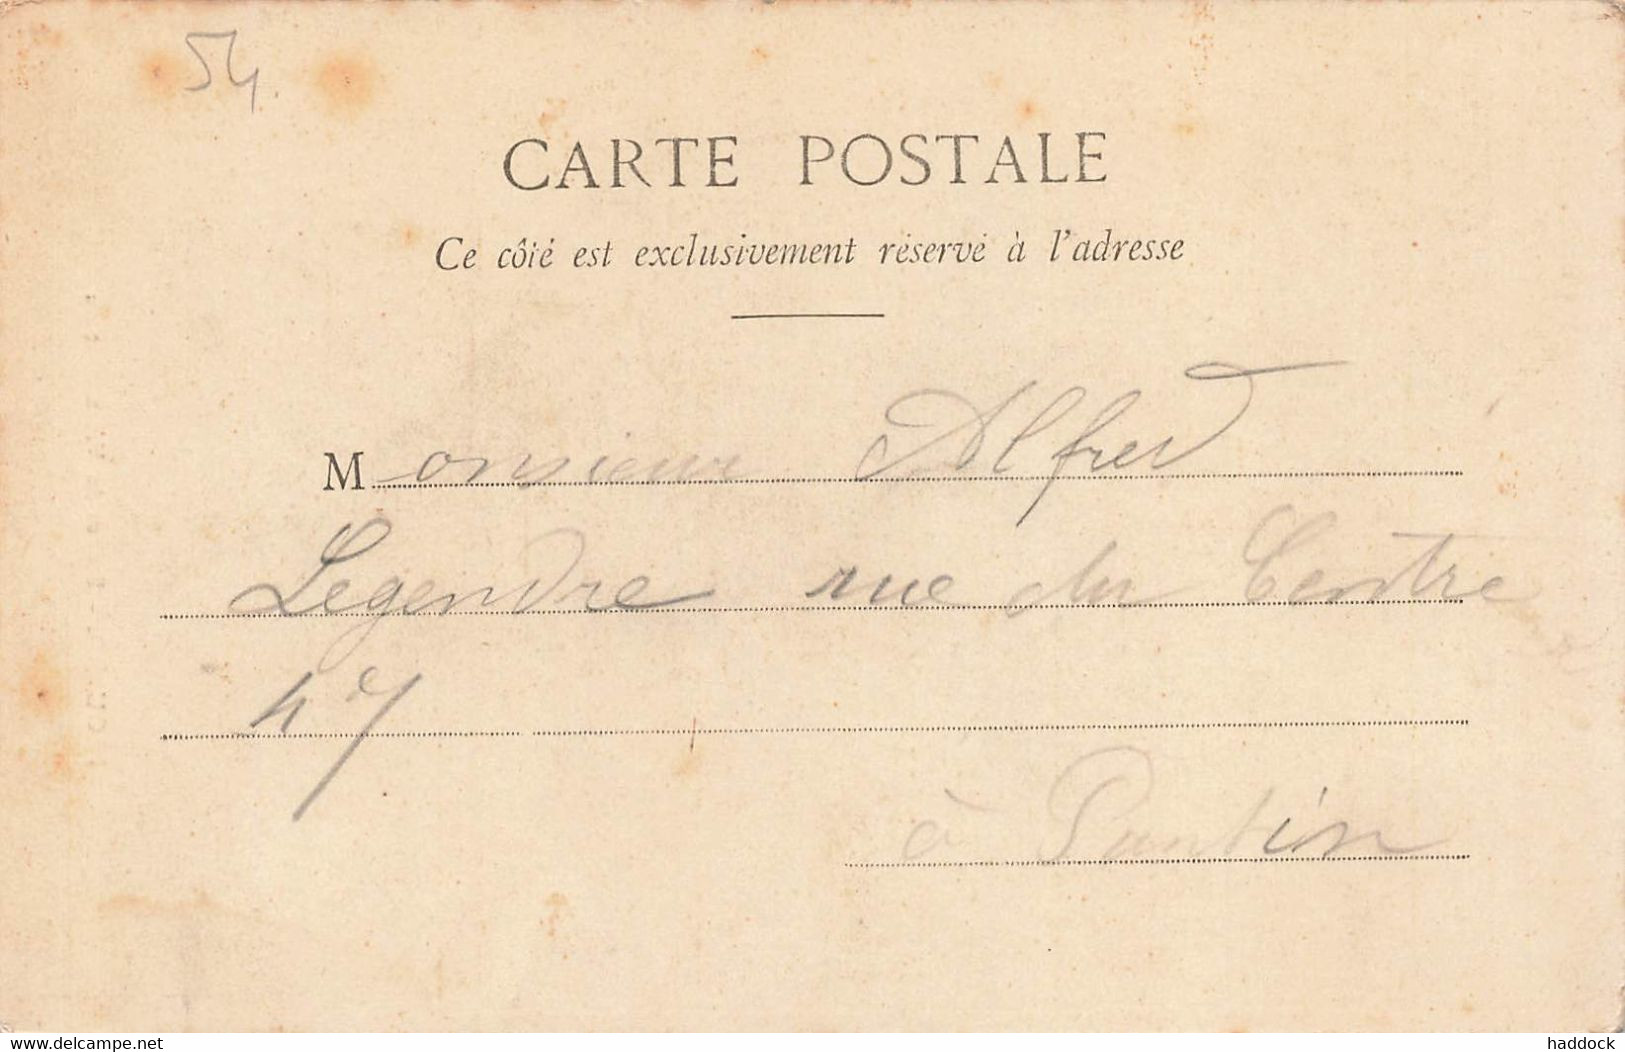 54.
CARTE POSTALE
Ce côté est exclusivement réservé à l'adresse
Monsieur Alfred
Legendre rue du Centre
47
à Pantin
www.delcampe.net
haddock